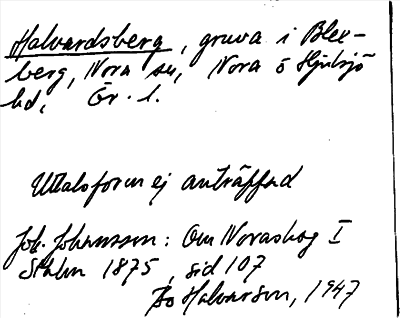 Halvardsberg, gruva i Blex-
berg, Nora sn, Nora o Hjulsjö
hd, Ör. l.
Uttalsform ej anträffad
Joh. Johansson: Om Noraskog I
Sthlm 1875, sid 107
Bo Halvarson, 1947